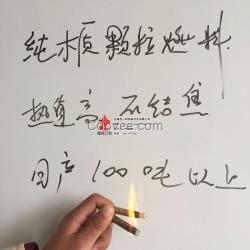 纯木质颗粒燃料
热值高 不结焦
Coovee.com
日产100吨以上